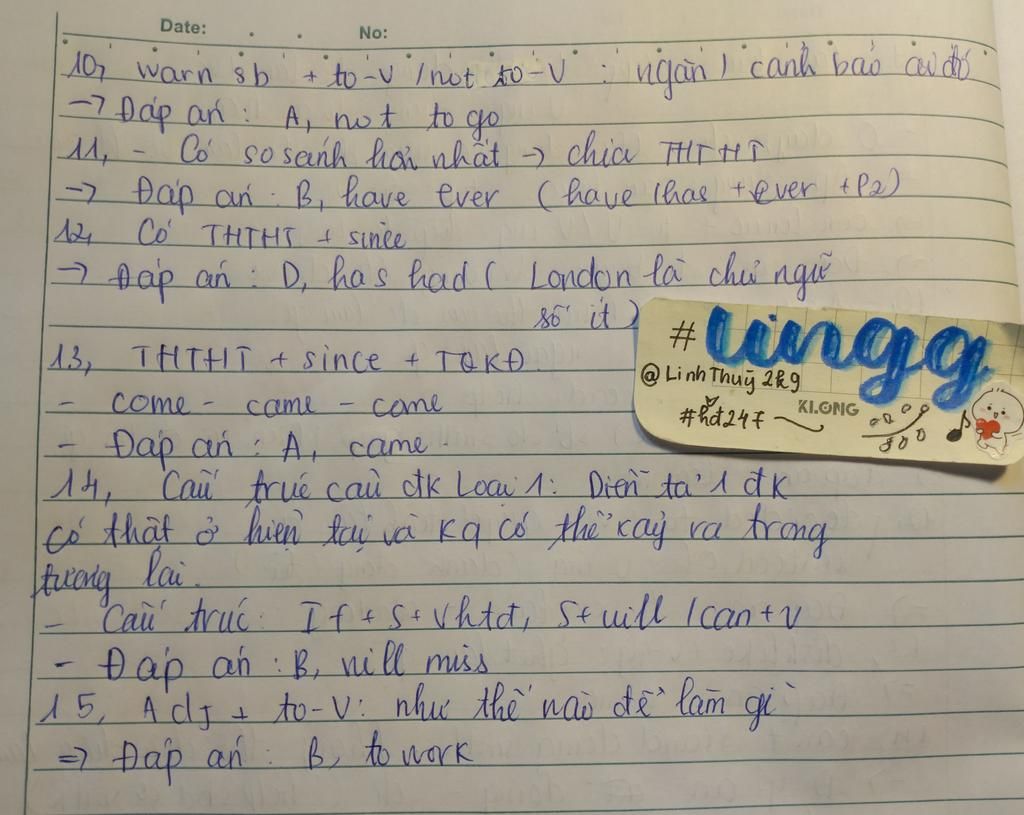 Date: No:
10, warn sb + to-V / not to-V : ngăn / cảnh báo ai đó
→ Đáp án : A, not to go
11, - Có so sánh hơn nhất → chia THTHT
→ Đáp án : B, have ever (have / has + ever + P2)
12, Có THTHT + since
→ Đáp án : D, has had ( London là chủ ngữ
số ít )
13, THTHT + since + TQKĐ
- come - came - come
- Đáp án : A, came
14, Cấu trúc câu đk Loại 1: Diễn tả 1 đk
có thật ở hiện tại và kq có thể xảy ra trong
tương lai.
- Cấu trúc: If + S + Vhtđ, S + will / can + V
- Đáp án : B, will miss
15, Adj + to-V: như thế nào để làm gì
⇒ Đáp án : B, to work
#lingg
@LinhThuỳ2k9
#hđ247
KLONG